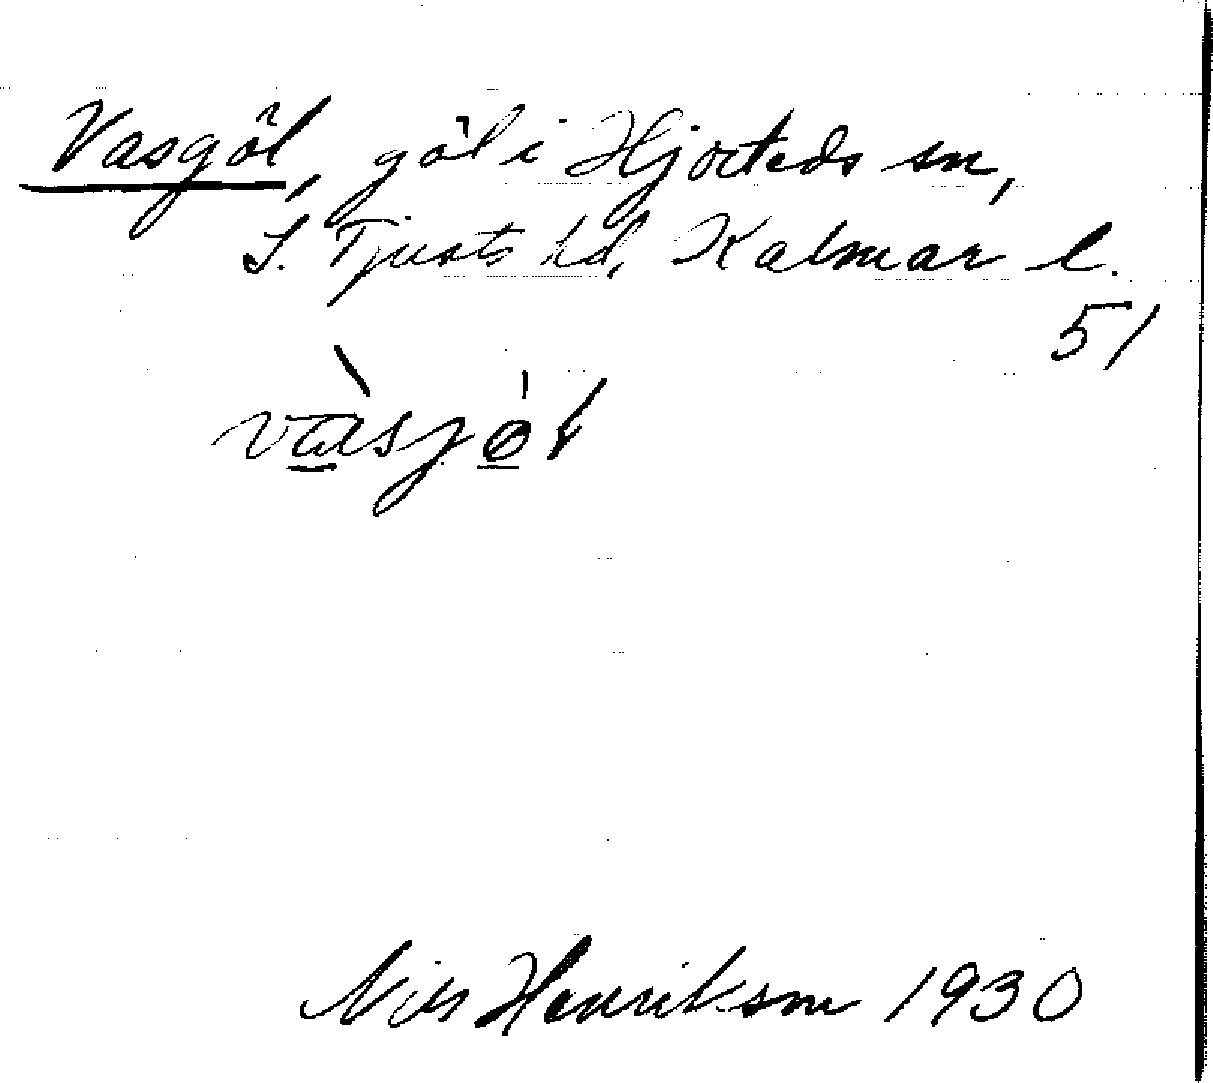 Vasgöl, göl i Hjorteds sn,
S. Tjusts hd, Kalmar l.
51
Nils Henriksson 1930